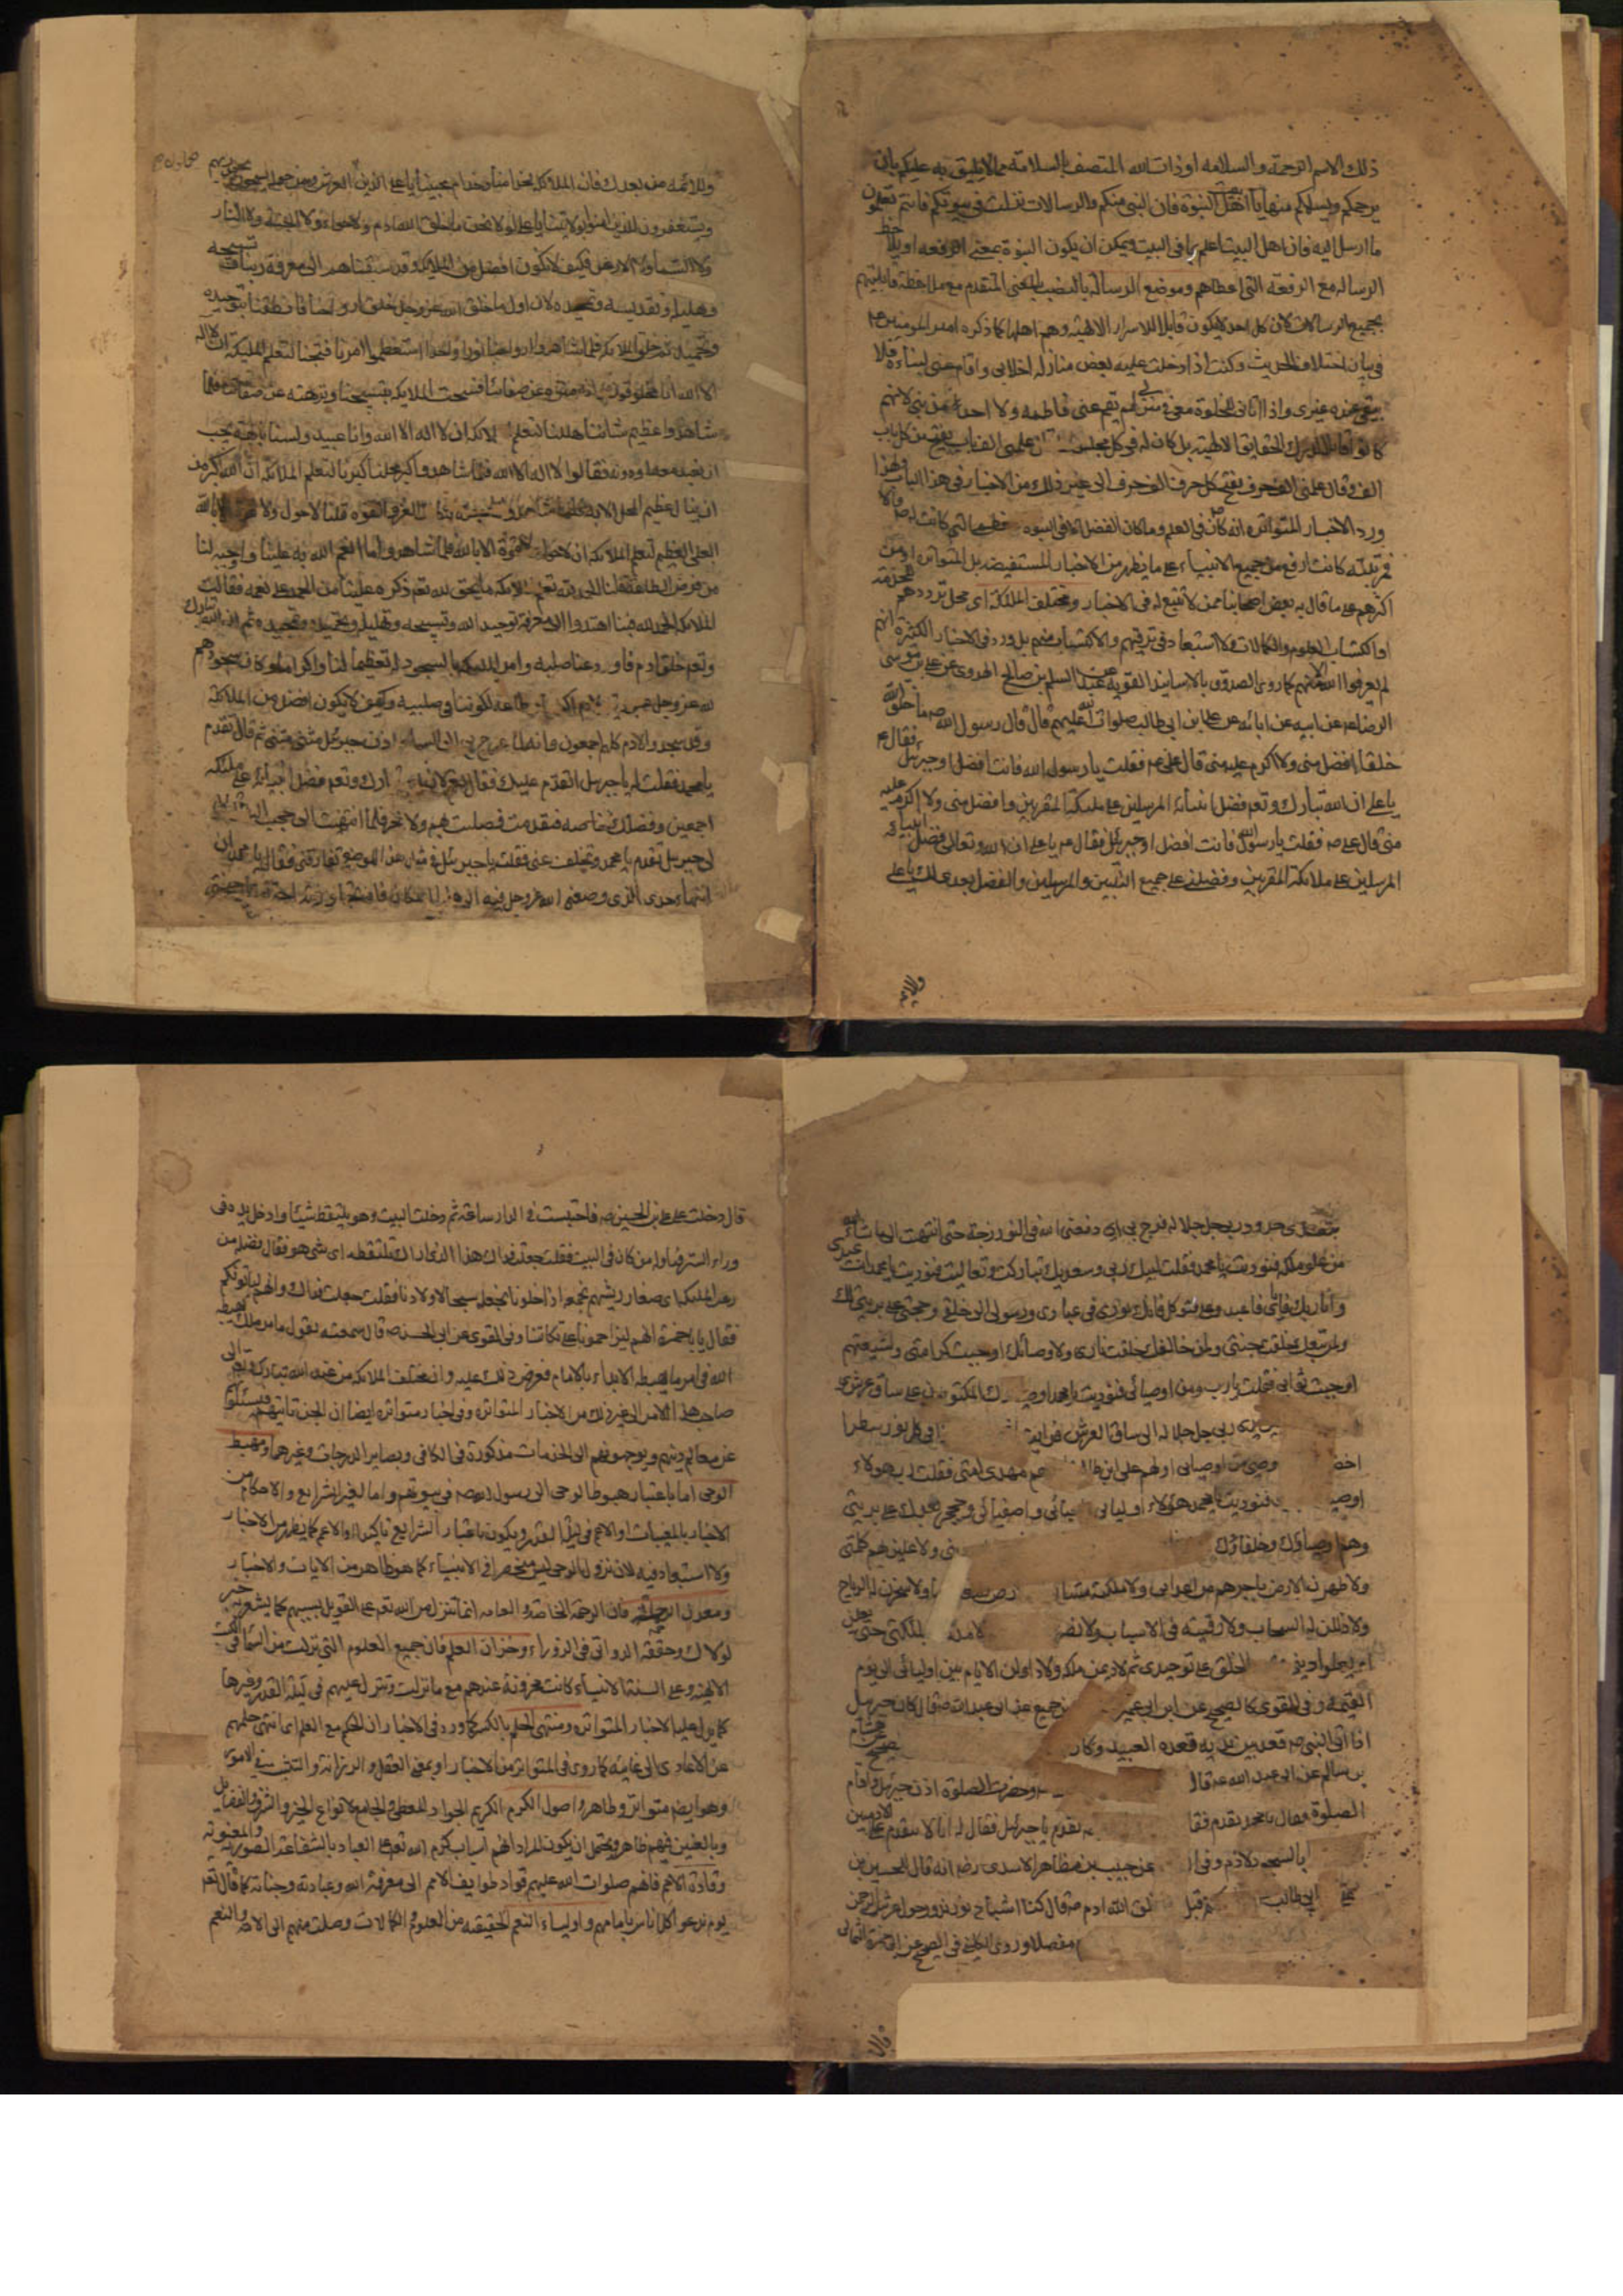 ذلك الاسم الرحمة والسلامه او ذات الله المتصف بالسلامة مما لا يليق به عليكم بان
يرحمكم ويسلمكم منها يا اهل بيت النبوة فان النبي منكم والرسالات نزلت في بيوتكم فانتم تعلمون
ما ارسل اليه فان اهل البيت اعلم بما في البيت ويمكن ان يكون النبوة بمعنى الرفعه او يلاحظ
الرساله مع الرفعة التي اعطاهم وموضع الرسالة بالنصب بالمعنى المتقدم مع ملاحظة قابليتهم
بجميع الرسالات لان كل احد لا يكون قابلا للاسرار الالهية وهم اهلها كما ذكره امير المومنين ع
في بيان اختلاف الحديث وكنت اذا دخلت عليه بعض منازله اخلاني واقام عني نساءه فلا
يبقى عنده غيري واذا اتاني للخلوة معي في منزلي لم تقم عني فاطمه ولا احد من بني لانهم
كانوا الحقايق الالهية بل كان له في كل مجلس علمني الف باب يفتح من كل باب
الف وقال علمني الف حرف يفتح كل حرف الف حرف الى غير ذلك من الاخبار في هذا الباب ولهذا
ورد الاخبار المتواتره انه كان في العلم وما كان الفضل الا في النبوه التي كانت له
فمرتبته كانت ارفع من جميع الانبياء على ما يظهر من الاخبار المستفيضه بل المتواتره ومن
اكثرهم على ما قال به بعض اصحابنا ممن لا تتبع له في الاخبار ومختلف الملائكة اي محل ترددهم
او اكتساب العلوم والكمالات فلا استبعاد في ترقيهم والاكتساب منهم بل ورد في الاخبار الكثيرة انهم
لم يعرفوا الله الا منهم كما روى الصدوق بالاسانيد القويه عن عبد السلم بن صالح الهروى عن علي بن موسى
الرضا ع عن ابيه عن ابائه عن علي ابن ابي طالب صلوات الله عليهم قال قال رسول الله ص ما خلق الله
خلقا افضل مني ولا اكرم عليه مني قال علي ع فقلت يا رسول الله فانت افضل او جبرئيل فقال ع
يا علي ان الله تبارك وتع فضل انبيائه المرسلين على ملئكته المقربين وافضل مني ولا اكرم عليه
مني قال علي ع فقلت يا رسول الله فانت افضل او جبرئيل فقال ع يا علي ان الله وتعالى فضل انبيائه
المرسلين على ملائكته المقربين وفضلني على جميع النبيين والمرسلين والفضل بعدي لك يا علي
وللائمه
وللائمه من بعدك فان الملائكة لخدامنا وخدام محبينا يا علي الذين يحملون العرش ومن حوله يسبحون بحمد ربهم
ويستغفرون للذين امنوا بولايتنا يا علي لولا نحن ما خلق الله ادم ولا حواء ولا الجنة ولا النار
ولا السماء ولا الارض فكيف لا نكون افضل من الملائكة وقد سبقناهم الى معرفة ربنا وتسبيحه
وتهليله وتقديسه وتمجيده لان اول ما خلق الله عز وجل خلق ارواحنا فانطقنا بتوحيده
وتحميده ثم خلق الملائكة فلما شاهدوا ارواحنا نورا واحدا استعظموا امرنا فسبحنا لتعلم الملئكة
انا خلق مخلوقون وانه منزه عن صفاتنا فسبحت الملايكه بتسبيحنا ونزهته عن صفاتنا فلما
شاهدوا عظيم شاننا هللنا لتعلم الملائكة ان لا اله الا الله وانا عبيد ولسنا بالهة يجب
ان نعبد معه او دونه فقالوا لا اله الا الله فلما شاهدوا كبر محلنا كبرنا لتعلم الملائكة ان الله اكبر من
ان ينال عظيم المحل الا به فلما شاهدوا العز والقوه قلنا لا حول ولا قوة الا بالله
العلي العظيم لتعلم الملائكة ان لا حول ولا قوة الا بالله فلما شاهدوا ما انعم الله به علينا واوجبه لنا
من فرض الطاعة قلنا الحمد لله لتعلم الملائكة ما يحق لله تع ذكره علينا من الحمد على نعمه فقالت
الملائكة الحمد لله فبنا اهتدوا الى معرفة توحيد الله وتسبيحه وتهليله وتحميده وتمجيده ثم ان الله تبارك
وتع خلق ادم فاودعنا صلبه وامر الملائكة بالسجود له تعظيما لنا واكراما وكان سجودهم
لله عز وجل عبودية ولادم اكراما وطاعه لكوننا في صلبه وكيف لا نكون افضل من الملائكة
وقد سجدوا لادم كلهم اجمعون وانه لما عرج بي الى السماء اذن جبرئيل مثنى مثنى ثم قال تقدم
يا محمد فقلت له يا جبرئيل اتقدم عليك فقال نعم لان الله تبارك وتع فضل انبيائه على ملئكته
اجمعين وفضلك خاصه فتقدمت فصليت بهم ولا فخر فلما انتهيت الى حجب النور قال
لي جبرئيل تقدم يا محمد وتخلف عني فقلت يا جبرئيل في مثل هذا الموضع تفارقني فقال يا محمد ان
انتهاء حدي الذي وصفني الله عز وجل فيه الى هذا المكان فان تجاوزته احترقت اجنحتي
بتعدي حدود ربي جل جلاله فزج بي في النور زجة حتى انتهيت الى ما شاء الله
من علو ملكه فنوديت يا محمد فقلت لبيك ربي وسعديك تباركت وتعاليت فنوديت يا محمد انت عبدي
وانا ربك فاياي فاعبد وعلي فتوكل فانك نوري في عبادي ورسولي الى خلقي وحجتي على بريتي لك
ولمن تبعك خلقت جنتي ولمن خالفك خلقت ناري ولاوصيائك اوجبت كرامتي ولشيعتهم
اوجبت ثوابي فقلت يا رب ومن اوصيائي فنوديت يا محمد اوصياؤك المكتوبون على ساق عرشي
ربي جل جلاله الى ساق العرش فرايت في كل نور سطرا
اخضر وصي من اوصيائي اولهم علي ابن ابي طالب مهدي امتي فقلت يا رب هولاء
فنوديت يا محمد هؤلاء اوليائي واصفيائي وحججي بعدك على بريتي
وهم اوصياؤك وخلفاؤك ولاعلين بهم كلمتي
ولاطهرن الارض باخرهم من اعدائي ولاملكنه ولاسخرن له الرياح
ولاذللن له السحاب ولارقينه في الاسباب ولانصرنه بملائكتي حتى يعلن
الخلق على توحيدي ثم لاديمن ملكه ولاداولن الايام بين اوليائي الى يوم
القيمة وفي القوي كالصحيح عن ابن ابي عمير عن جميع عن ابي عبد الله ع قال كان جبرئيل
اذا اتى النبي ص قعد بين يديه قعده العبيد وكان
بن سالم عن ابي عبد الله ع قال وحضرت الصلوة اذن جبرئيل واقام
الصلوة فقال يا محمد تقدم فقال تقدم يا جبرئيل فقال له انا لا نتقدم على الادميين
بالسجود لادم وفي عن حبيب بن مظاهر الاسدي رضه انه قال للحسين بن
علي ابي طالب قبل خلق الله ادم ع قال كنا اشباح نور ندور حول عرش الرحمن
مفصلا وروى الكليني في الصحيح عن ابي حمزة الثمالي
قال
قال دخلت على علي بن الحسين ع فاحتبست في الدار ساعة ثم دخلت البيت وهو يلتقط شيئا وادخل يده في
وراء الستر فناوله من كان في البيت فقلت جعلت فداك هذا الذي اراك تلتقطه اي شي هو فقال فضله من
زغب الملئكة اي صغار ريشهم نجمعه اذا خلونا نجعله سيحا لاولادنا فقلت جعلت فداك وانهم لياتونكم
فقال يا با حمزة انهم ليزاحمونا على تكاتنا وفي القوي عن ابي الحسن ع قال سمعته يقول ما من ملك يهبطه
الله في امر ما يهبطه الا بدء بالامام فعرض ذلك عليه وان مختلف الملائكة من عند الله تبارك وتعالى الى
صاحب هذا الامر الى غير ذلك من الاخبار المتواتره وفي اخبار متواتره ايضا ان الجن تاتيهم ويسئلوا
عن معالم دينهم ويوجهونهم الى الخدمات مذكورة في الكافي وبصاير الدرجات وغيرهما ومهبط
الوحي اما باعتبار هبوط الوحي الى رسول الله ص في بيوتهم واما لغير الشرايع والاحكام من
الاخبار بالمغيبات او الاعم في ليلة القدر ويكون باعتبار الشرايع تاكيدا والاعم كما يظهر من الاخبار
ولا استبعاد فيه لان نزول الوحي ليس منحصرا في الانبياء كما هو ظاهر من الايات والاخبار
ومعدن الرحمة فان الرحمة الخاصه والعامه انما تنزل من الله تع على القوابل بسببهم كما يشعر به خبر
لولاك وحققه الدواني في الزوراء وخزان العلم فان جميع العلوم التي نزلت من السماء في الكتب
الالهية وعلى السنة الانبياء كانت مخزونة عندهم مع ما نزلت وتنزل عليهم في ليلة القدر وغيرها
كما يدل عليه الاخبار المتواتره ومنتهى الحلم بالكسر كما ورد في الاخبار ان الحكم مع العلم اي انتهى حلمهم
عن الاعادي الى غايته كما روي في المتواتر من الاخبار او بمعنى العقل والرزانة والتثبت في الامور
وهو ايضا متواتر وظاهر واصول الكرم الكريم الجواد المعطي والجامع لانواع الخير والشرف والفضايل
وبالمعنيين فيهم ظاهر ويحتمل ان يكون المراد انهم اسباب كرم الله تع على العباد بالشفاعة الصوريه والمعنويه
وقادة الامم فانهم صلوات الله عليهم قواد طوايف الامم الى معرفة الله وعبادته وجنانه كما قال تع
يوم ندعو كل اناس بامامهم واولياء النعم الحقيقيه من العلوم الكمالات وصلت منهم الى الامه والنعم